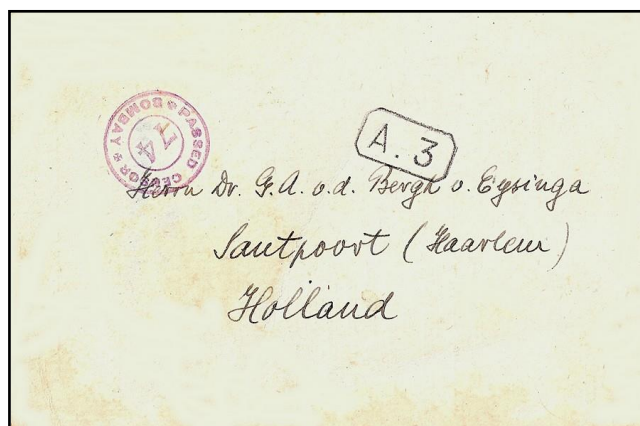 PASSED CENSOR BOMBAY
74
A.3
Herrn Dr. G. A. v. d. Bergh v. Eysinga
Santpoort (Haarlem)
Holland